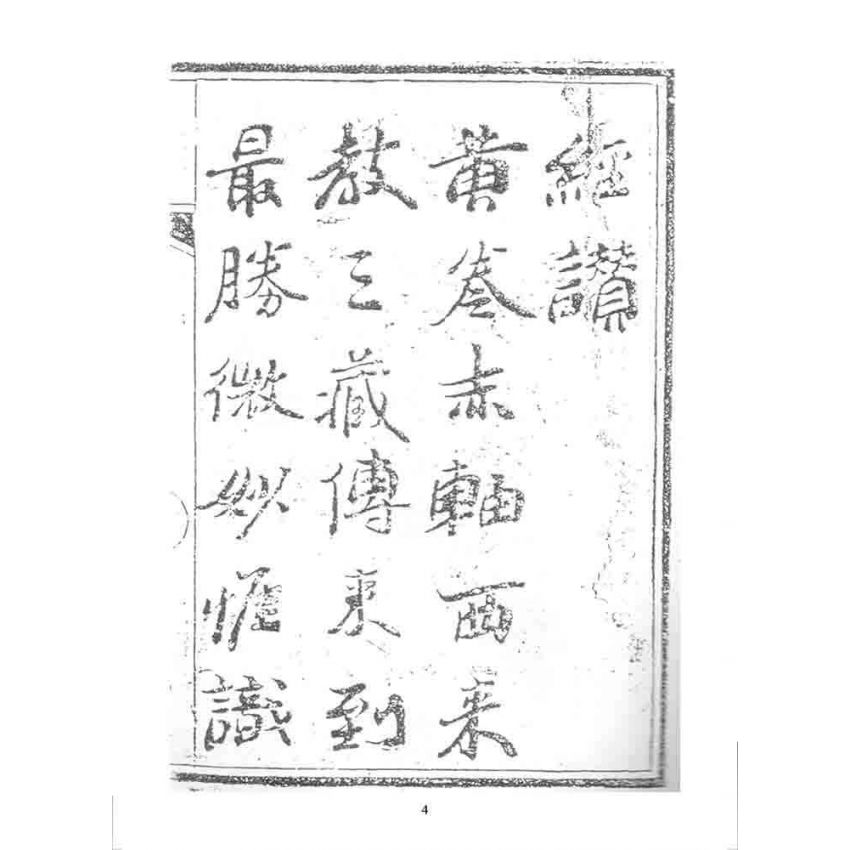 經讃
黄卷赤軸西来
教三藏傳東到
最勝微妙惟識
4